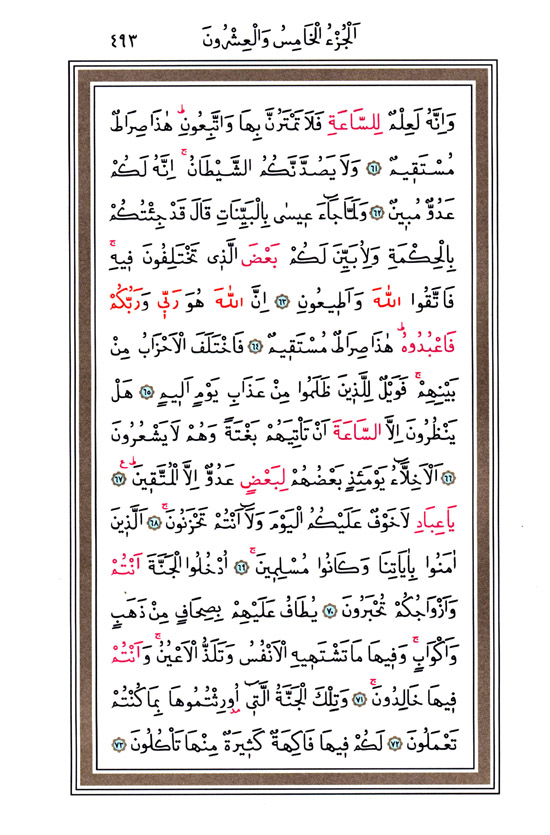 اَلْجُزْءُ الْخَامِسُ وَالْعِشْرُونَ ٤٩٣
وَاِنَّهُ لَعِلْمٌ لِلسَّاعَةِ فَلَا تَمْتَرُنَّ بِهَا وَاتَّبِعُونِۜ هٰذَا صِرَاطٌ
مُسْتَق۪يمٌ ﴿٦١﴾ وَلَا يَصُدَّنَّكُمُ الشَّيْطَانُۚ اِنَّهُ لَكُمْ
عَدُوٌّ مُب۪ينٌ ﴿٦٢﴾ وَلَمَّا جَٓاءَ ع۪يسٰى بِالْبَيِّنَاتِ قَالَ قَدْ جِئْتُكُمْ
بِالْحِكْمَةِ وَلِاُبَيِّنَ لَكُمْ بَعْضَ الَّذ۪ي تَخْتَلِفُونَ ف۪يهِۚ
فَاتَّقُوا اللّٰهَ وَاَط۪يعُونِ ﴿٦٣﴾ اِنَّ اللّٰهَ هُوَ رَبّ۪ي وَرَبُّكُمْ
فَاعْبُدُوهُۜ هٰذَا صِرَاطٌ مُسْتَق۪يمٌ ﴿٦٤﴾ فَاخْتَلَفَ الْاَحْزَابُ مِنْ
بَيْنِهِمْۚ فَوَيْلٌ لِلَّذ۪ينَ ظَلَمُوا مِنْ عَذَابِ يَوْمٍ اَل۪يمٍ ﴿٦٥﴾ هَلْ
يَنْظُرُونَ اِلَّا السَّاعَةَ اَنْ تَأْتِيَهُمْ بَغْتَةً وَهُمْ لَا يَشْعُرُونَ
﴿٦٦﴾ اَلْاَخِلَّٓاءُ يَوْمَئِذٍ بَعْضُهُمْ لِبَعْضٍ عَدُوٌّ اِلَّا الْمُتَّق۪ينَۜ ع ﴿٦٧﴾
يَاعِبَادِ لَا خَوْفٌ عَلَيْكُمُ الْيَوْمَ وَلَٓا اَنْتُمْ تَحْزَنُونَۚ ﴿٦٨﴾ اَلَّذ۪ينَ
اٰمَنُوا بِاٰيَاتِنَا وَكَانُوا مُسْلِم۪ينَۚ ﴿٦٩﴾ اُدْخُلُوا الْجَنَّةَ اَنْتُمْ
وَاَزْوَاجُكُمْ تُحْبَرُونَ ﴿٧٠﴾ يُطَافُ عَلَيْهِمْ بِصِحَافٍ مِنْ ذَهَبٍ
وَاَكْوَابٍۚ وَف۪يهَا مَا تَشْتَه۪يهِ الْاَنْفُسُ وَتَلَذُّ الْاَعْيُنُۚ وَاَنْتُمْ
ف۪يهَا خَالِدُونَۚ ﴿٧١﴾ وَتِلْكَ الْجَنَّةُ الَّت۪ٓي اُو۫رِثْتُمُوهَا بِمَا كُنْتُمْ
تَعْمَلُونَ ﴿٧٢﴾ لَكُمْ ف۪يهَا فَاكِهَةٌ كَث۪يرَةٌ مِنْهَا تَأْكُلُونَ ﴿٧٣﴾